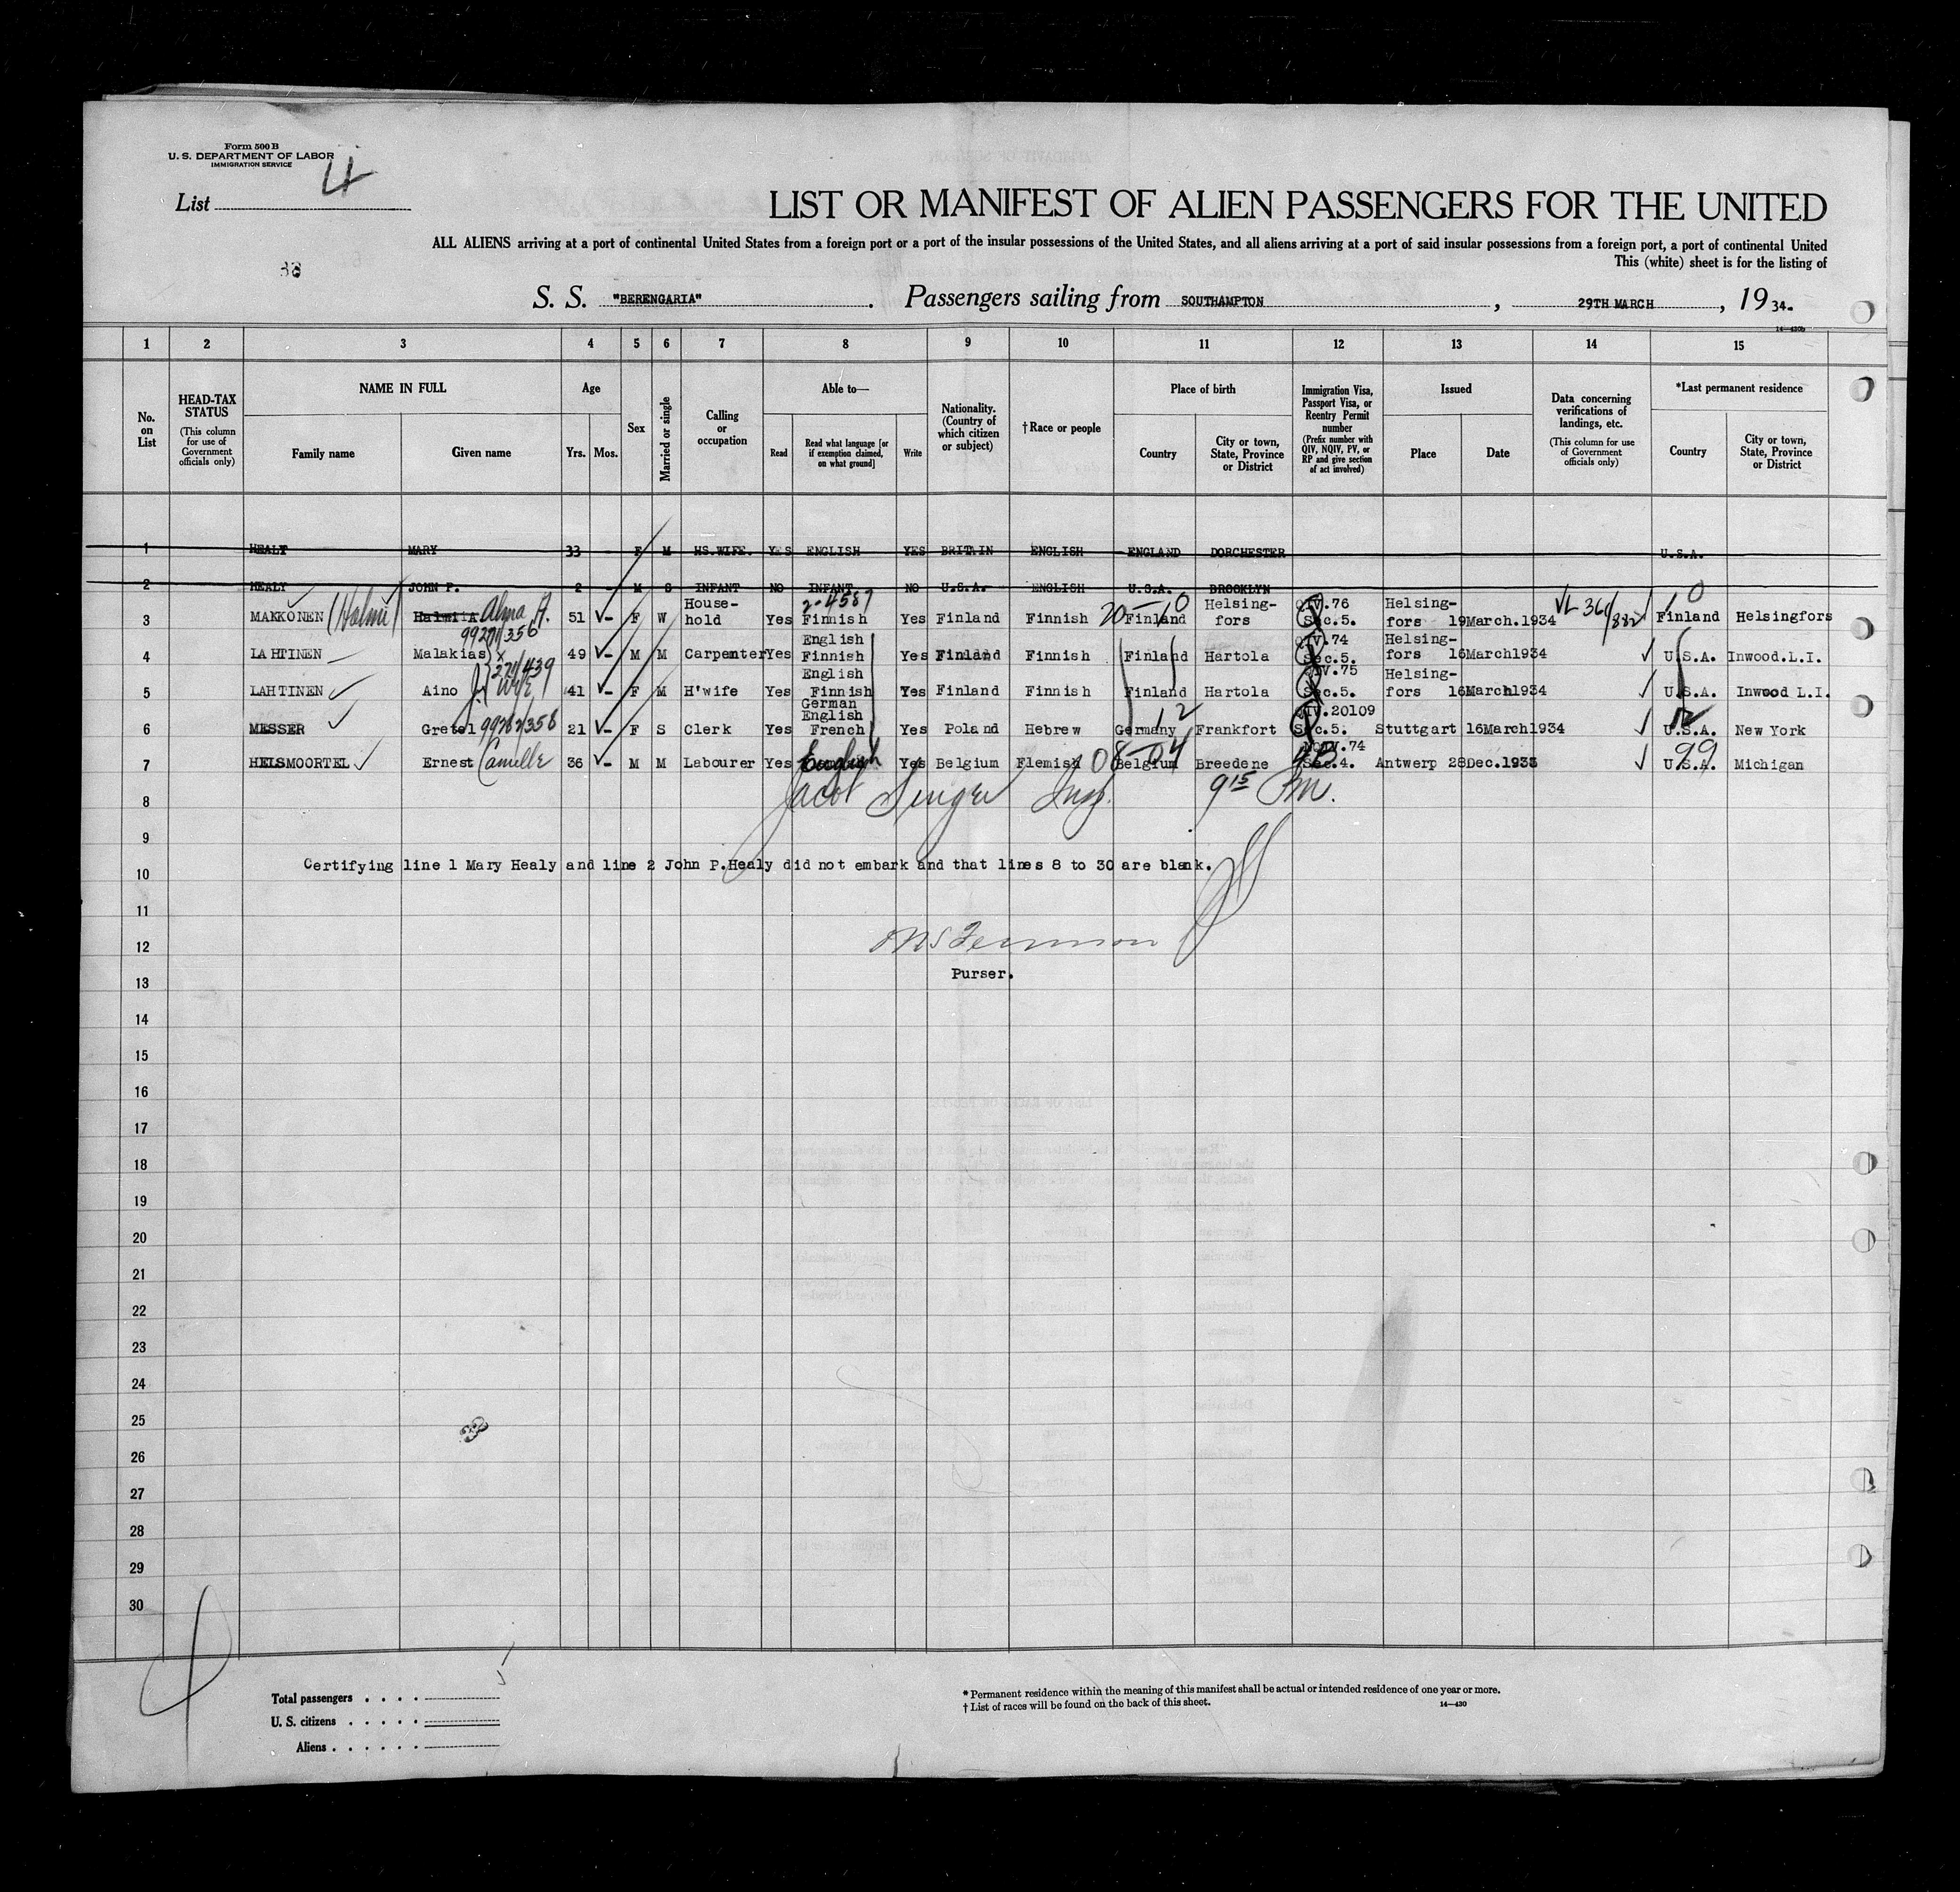 Form 500 B
U. S. DEPARTMENT OF LABOR
IMMIGRATION SERVICE
List 4
LIST OR MANIFEST OF ALIEN PASSENGERS FOR THE UNITED
ALL ALIENS arriving at a port of continental United States from a foreign port or a port of the insular possessions of the United States, and all aliens arriving at a port of said insular possessions from a foreign port, a port of continental United
This (white) sheet is for the listing of
38
S. S. "BERENGARIA". Passengers sailing from SOUTHAMPTON, 29TH MARCH, 19 34.
14—430b
1 2 3 4 5 6 7 8 9 10 11 12 13 14 15
No. on List
HEAD-TAX STATUS
(This column for use of Government officials only)
NAME IN FULL
Family name
Given name
Age
Yrs. Mos.
Sex
Married or single
Calling or occupation
Able to—
Read
Read what language [or if exemption claimed, on what ground]
Write
Nationality. (Country of which citizen or subject)
†Race or people
Place of birth
Country
City or town, State, Province or District
Immigration Visa, Passport Visa, or Reentry Permit number
(Prefix number with QIV, NQIV, PV, or RP and give section of act involved)
Issued
Place
Date
Data concerning verifications of landings, etc.
(This column for use of Government officials only)
*Last permanent residence
Country
City or town, State, Province or District
1 HEALY MARY 33 F M HS.WIFE. YES ENGLISH YES BRITAIN ENGLISH ENGLAND DORCHESTER U.S.A.
2 HEALY JOHN P. 2 M S INFANT NO INFANT NO U.S.A. ENGLISH U.S.A. BROOKLYN
2-4587
3 MAKKONEN (Halmi) Alma A. 51 F W House-hold Yes Finnish Yes Finland Finnish Finland Helsing-fors QIV.76 Sec.5. Helsing-fors 19March.1934 VL 36/882 Finland Helsingfors
99271/356
4 LAHTINEN Malakias 49 M M Carpenter Yes English Finnish Yes Finland Finnish Finland Hartola QIV.74 Sec.5. Helsing-fors 16March1934 U.S.A. Inwood.L.I.
271/439
Wife
5 LAHTINEN Aino 41 F M H'wife Yes English Finnish Yes Finland Finnish Finland Hartola QIV.75 Sec.5. Helsing-fors 16March1934 U.S.A. Inwood L.I.
6 MESSER Gretel 99282/358 21 F S Clerk Yes German English French Yes Poland Hebrew Germany Frankfort QIV.20109 Sec.5. Stuttgart 16March1934 U.S.A. New York
7 HELSMOORTEL Ernest Camille 36 M M Labourer Yes English Yes Belgium Flemish Belgium Breedene NQIV.74 Sec.4. Antwerp 28Dec.1933 99 U.S.A. Michigan
8 Jacob Singer Insp. 9 15 PM.
9
Certifying line 1 Mary Healy and line 2 John P.Healy did not embark and that lines 8 to 30 are blank.
10
11
12
Purser.
13
14
15
16
17
18
19
20
21
22
23
24
25
26
27
28
29
30
5
Total passengers
U. S. citizens
Aliens
* Permanent residence within the meaning of this manifest shall be actual or intended residence of one year or more.
† List of races will be found on the back of this sheet.
14—430